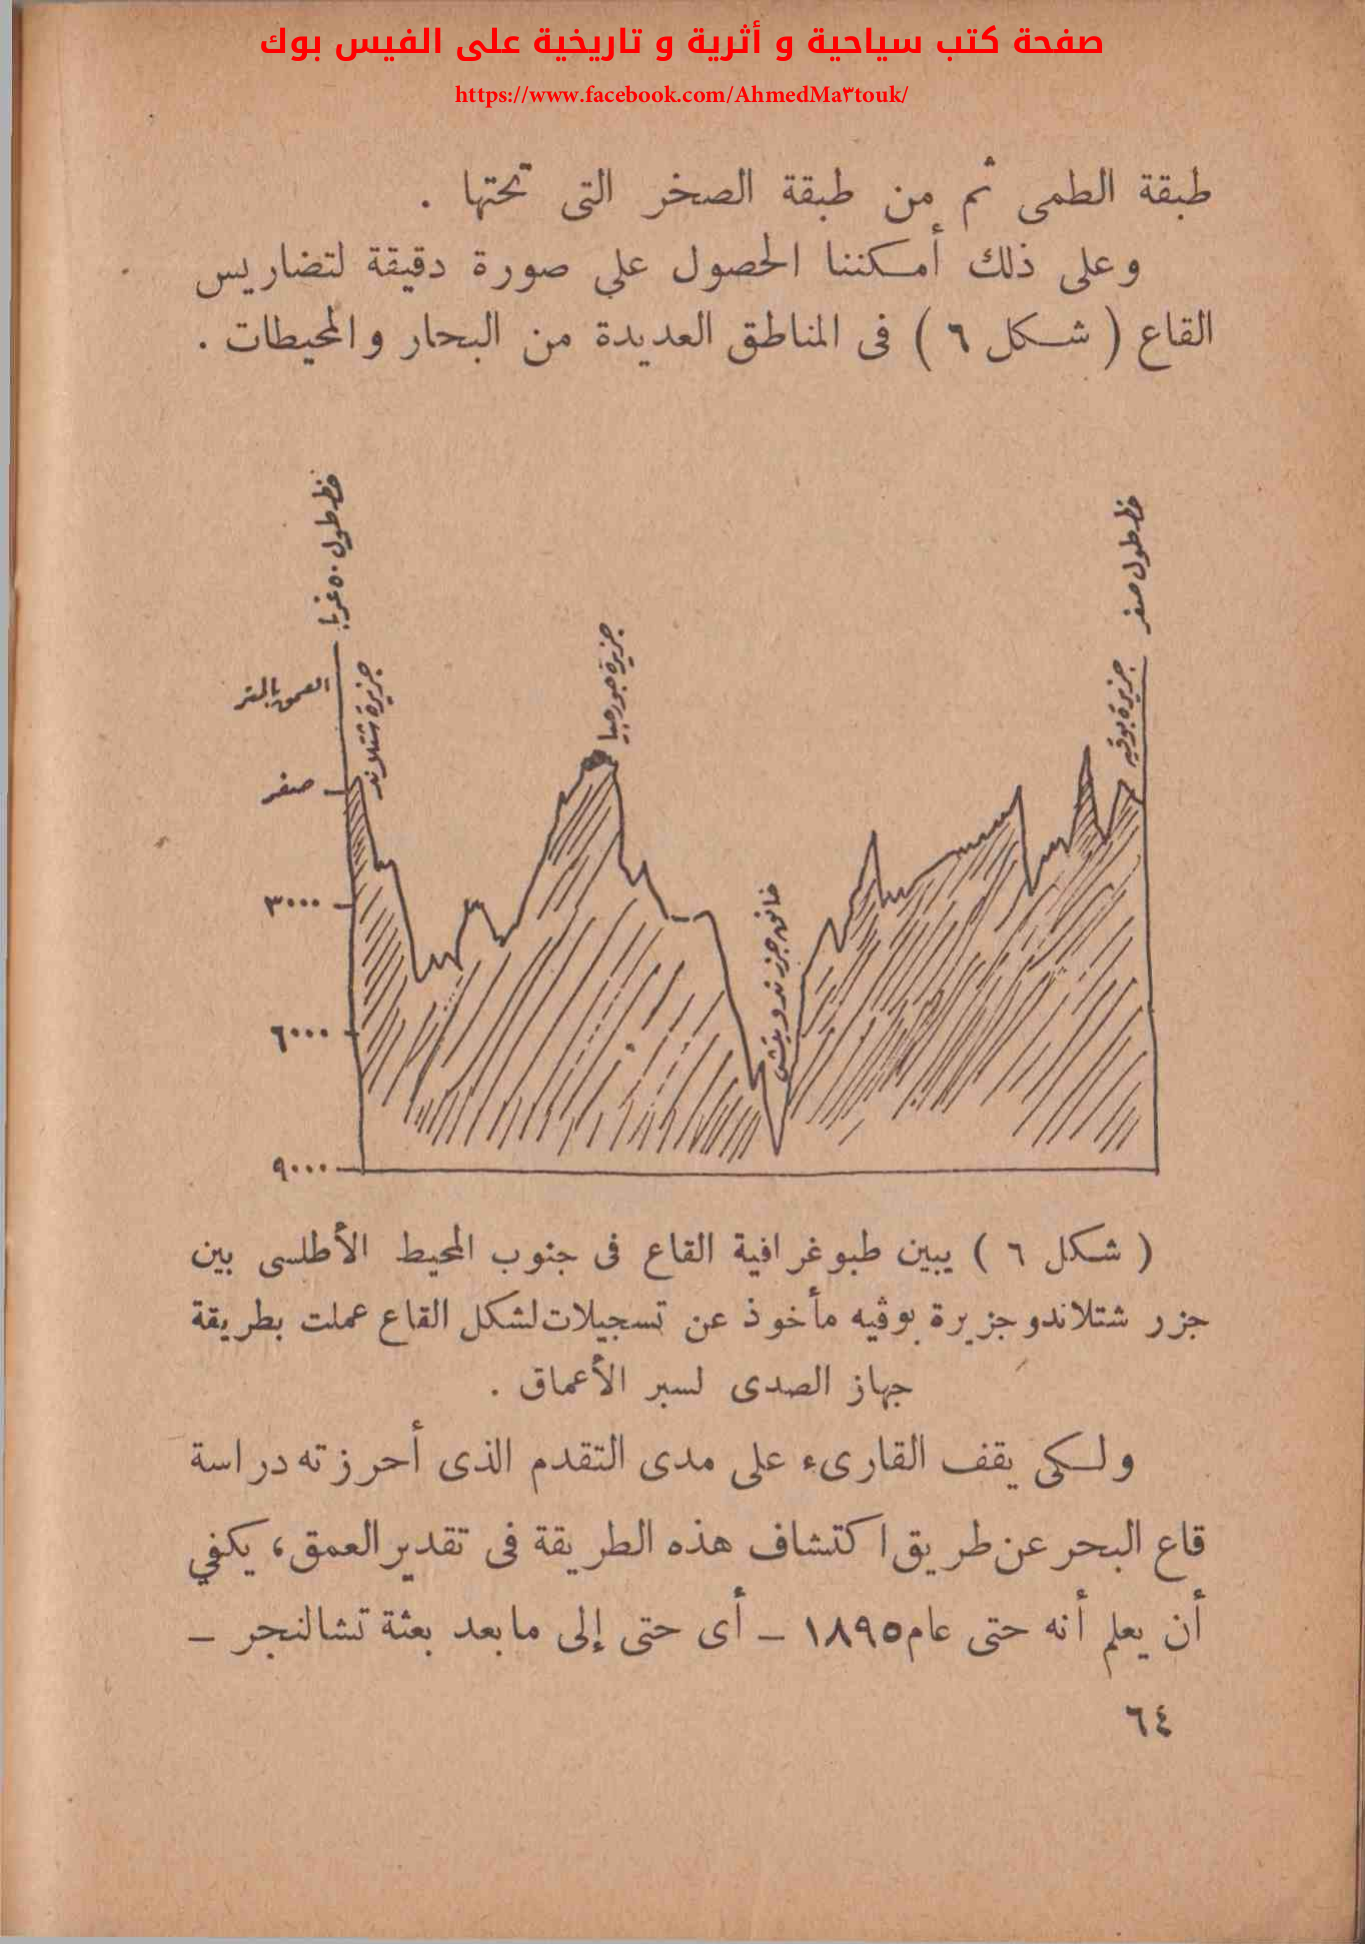 صفحة كتب سياحية و أثرية و تاريخية على الفيس بوك
https://www.facebook.com/AhmedMa٣touk/
طبقة الطمى ثم من طبقة الصخر التى تحتها .
وعلى ذلك أمكننا الحصول على صورة دقيقة لتضاريس
القاع ( شكل ٦ ) فى المناطق العديدة من البحار والمحيطات .
خط طول ٥٠ غربا
خط طول صفر
العمق بالمتر
جزيرة شتلاند
جزيرة جورجيا
جزيرة بوڤيه
صفر
٣٠٠٠
خانق جزر ندويتش
٦٠٠٠
٩٠٠٠
( شكل ٦ ) يبين طبوغرافية القاع فى جنوب المحيط الأطلسى بين
جزر شتلاندو جزيرة بوڤيه مأخوذ عن تسجيلات لشكل القاع عملت بطريقة
جهاز الصدى لسبر الأعماق .
ولكى يقف القارىء على مدى التقدم الذى أحرزته دراسة
قاع البحر عن طريق اكتشاف هذه الطريقة فى تقدير العمق، يكفي
أن يعلم أنه حتى عام ١٨٩٥ – أى حتى إلى ما بعد بعثة تشالنجر –
٦٤